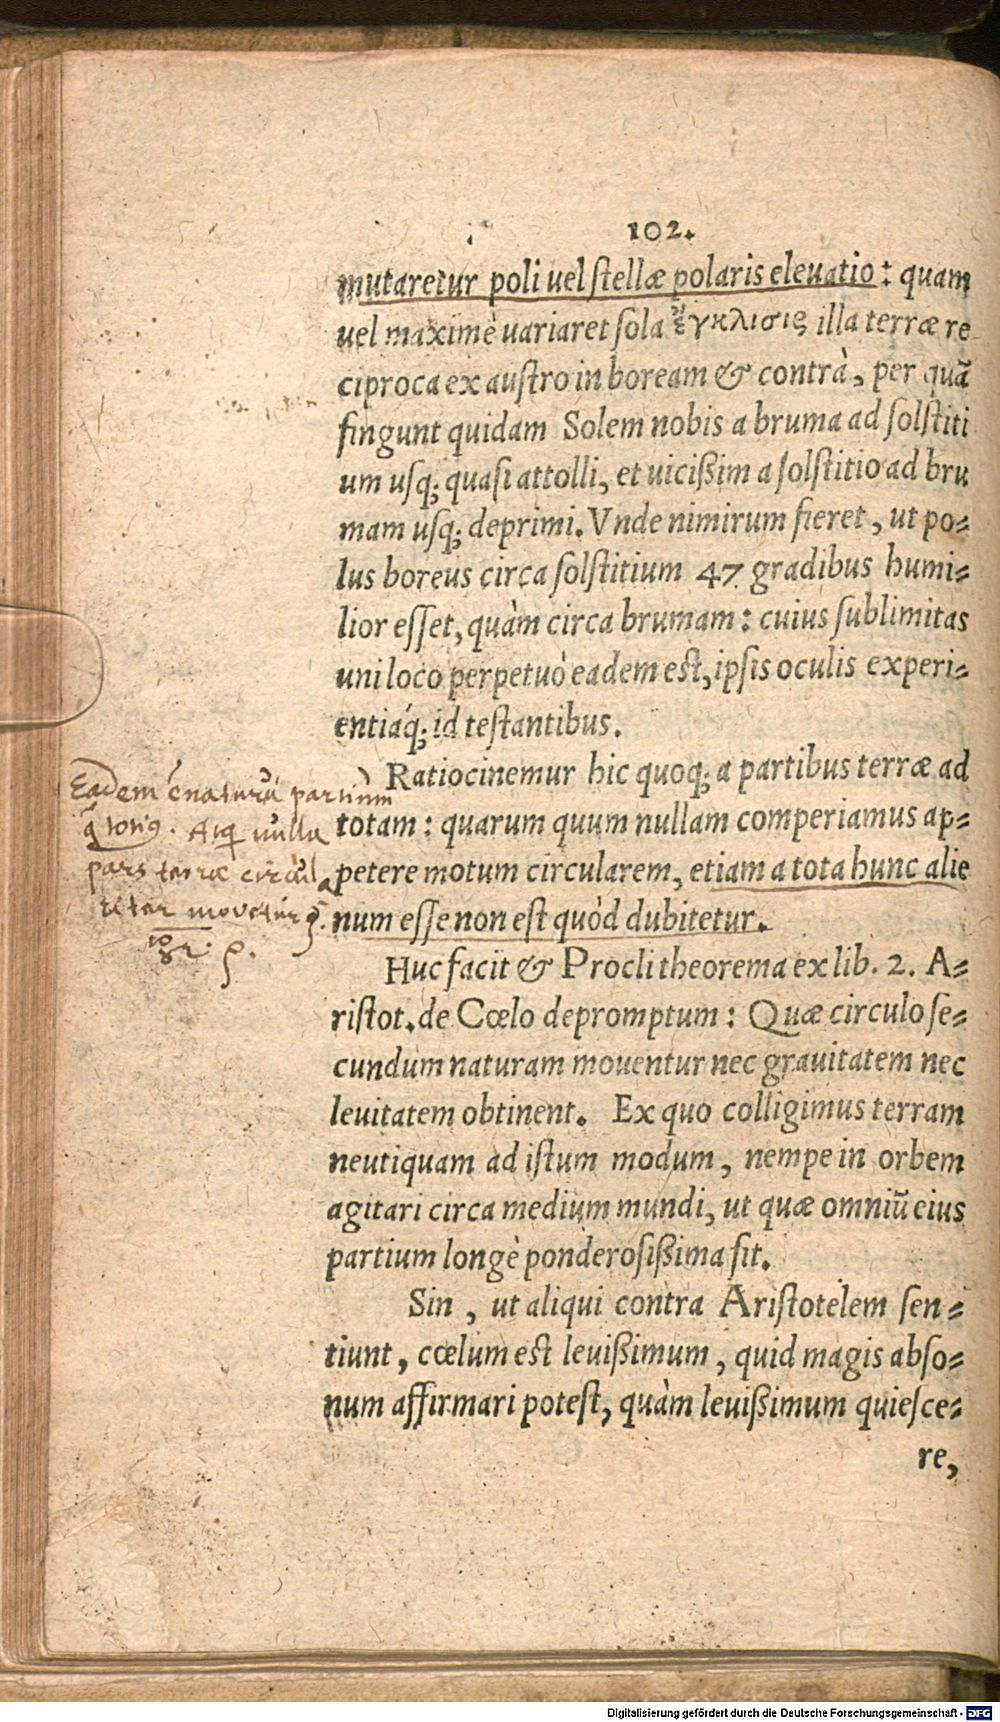 102.
mutaretur poli vel stellæ polaris eleuatio: quam
vel maximè uariaret sola ἔγκλισις illa terræ re
ciproca ex austro in boream & contrà, per quã
fingunt quidam Solem nobis a bruma ad solstiti
um usq; quasi attolli, et uicißim a solstitio ad bru
mam usq; deprimi. Vnde nimirum fieret, ut po-
lus boreus circa solstitium 47 gradibus humi-
lior esset, quàm circa brumam: cuius sublimitas
uni loco perpetuò eadem est, ipsis oculis experi-
entiáq; id testantibus.
Ratiocinemur hic quoq; a partibus terræ ad
totam: quarum quum nullam comperiamus ap-
petere motum circularem, etiam a tota hunc alie
num esse non est quòd dubitetur.
Eadem é natura partium
nulla
pars terræ circula
riter movetur
Huc facit & Procli theorema ex lib. 2. A-
ristot. de Cœlo depromptum: Quæ circulo se-
cundum naturam mouentur nec grauitatem nec
leuitatem obtinent. Ex quo colligimus terram
neutiquam ad istum modum, nempe in orbem
agitari circa medium mundi, ut quæ omniũ eius
partium longè ponderosißima sit.
Sin, ut aliqui contra Aristotelem sen-
tiunt, cœlum est leuißimum, quid magis abso-
num affirmari potest, quàm leuißimum quiesce-
re,
Digitalisierung gefördert durch die Deutsche Forschungsgemeinschaft - DFG